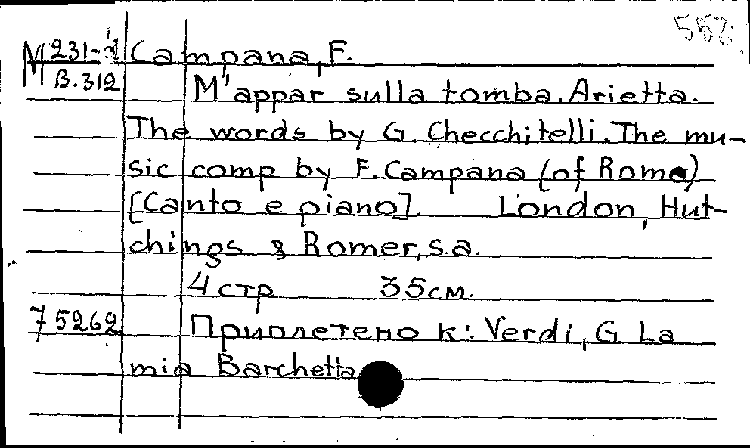 557
M 231-2 Campana, F.
B.312 M'appar sulla tomba. Arietta.
The words by G. Checchitelli. The mu-
sic comp by F. Campana (of Rome)
[Canto e piano]. London, Hut-
chings & Romer, s.a.
4 стр 35см.
75262 Приплетено к: Verdi, G La
mia Barchetta